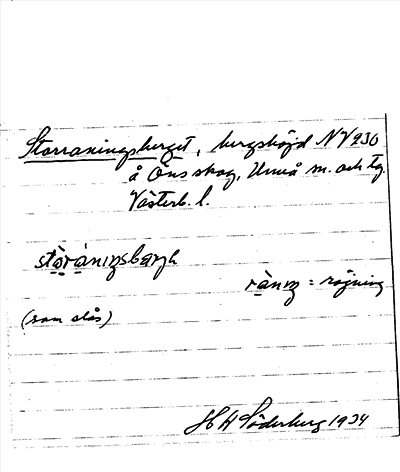 Storraningsberget, bergshöjd NV 230
å Öns skog, Umeå m. och tg.
Västerb. l.
stòrànıŋsbærjə
rànıŋ = röjning
(som slås)
H A Söderberg 1934